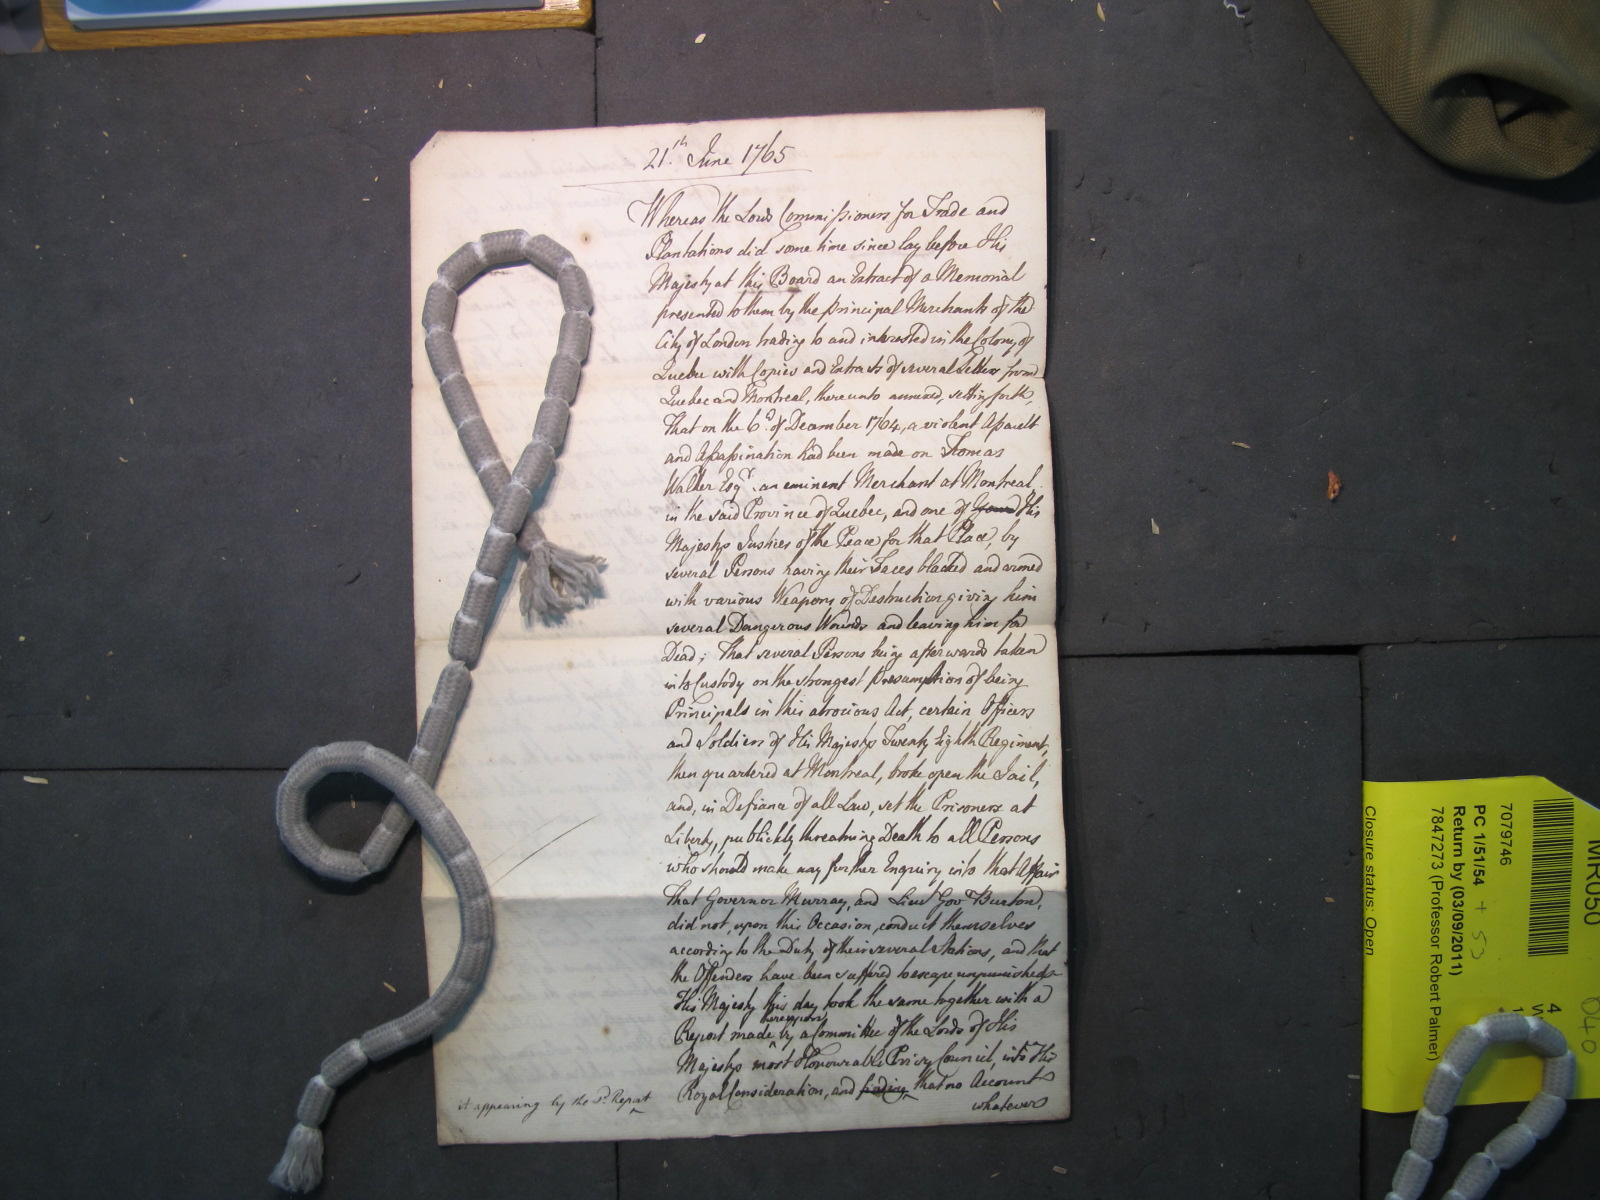 21.th June 1765
Whereas the Lords Commissioners for Trade and
Plantations did some time since lay before His
Majesty at this Board an Extract of a Memorial
presented to them by the principal Merchants of the
City of London trading to and interested in the Colony of
Quebec with Copies and Extracts of several Letters from
Quebec and Montreal, thereunto annexed, setting forth,
That on the 6.th of December 1764, a violent Assault
and Assassination had been made on Thomas
Walker Esqr. an eminent Merchant at Montreal
in the said Province of Quebec, and one of His
Majestys Justices of the Peace for that Place, by
several Persons having their Faces blacked and armed
with various Weapons of Destruction giving him
several Dangerous Wounds and leaving him for
Dead; That several Persons being afterwards taken
into Custody on the strongest Presumption of being
Principals in this atrocious Act, certain Officers
and Soldiers of His Majestys Twenty Eighth Regiment,
then quartered at Montreal, broke open the Jail,
and, in Defiance of all Law, set the Prisoners at
Liberty, publickly threatning Death to all Persons
who should make any further Enquiry into that Affair
That Governor Murray, and Lieut. Gov. Burton,
did not, upon this Occasion, conduct themselves
according to the Duty of their several Stations, and that
the Offenders have been suffered to escape unpunished
His Majesty this day took the same together with a
Report made thereupon by a Committee of the Lords of His
Majestys most Honourable Privy Council, into His
Royal Consideration, and finding that no Account
it appearing by the sd. Report
whatever
MR050
7079746
PC 1/51/54 + 53
Return by (03/09/2011)
7847273 (Professor Robert Palmer)
Closure status: Open
040
4